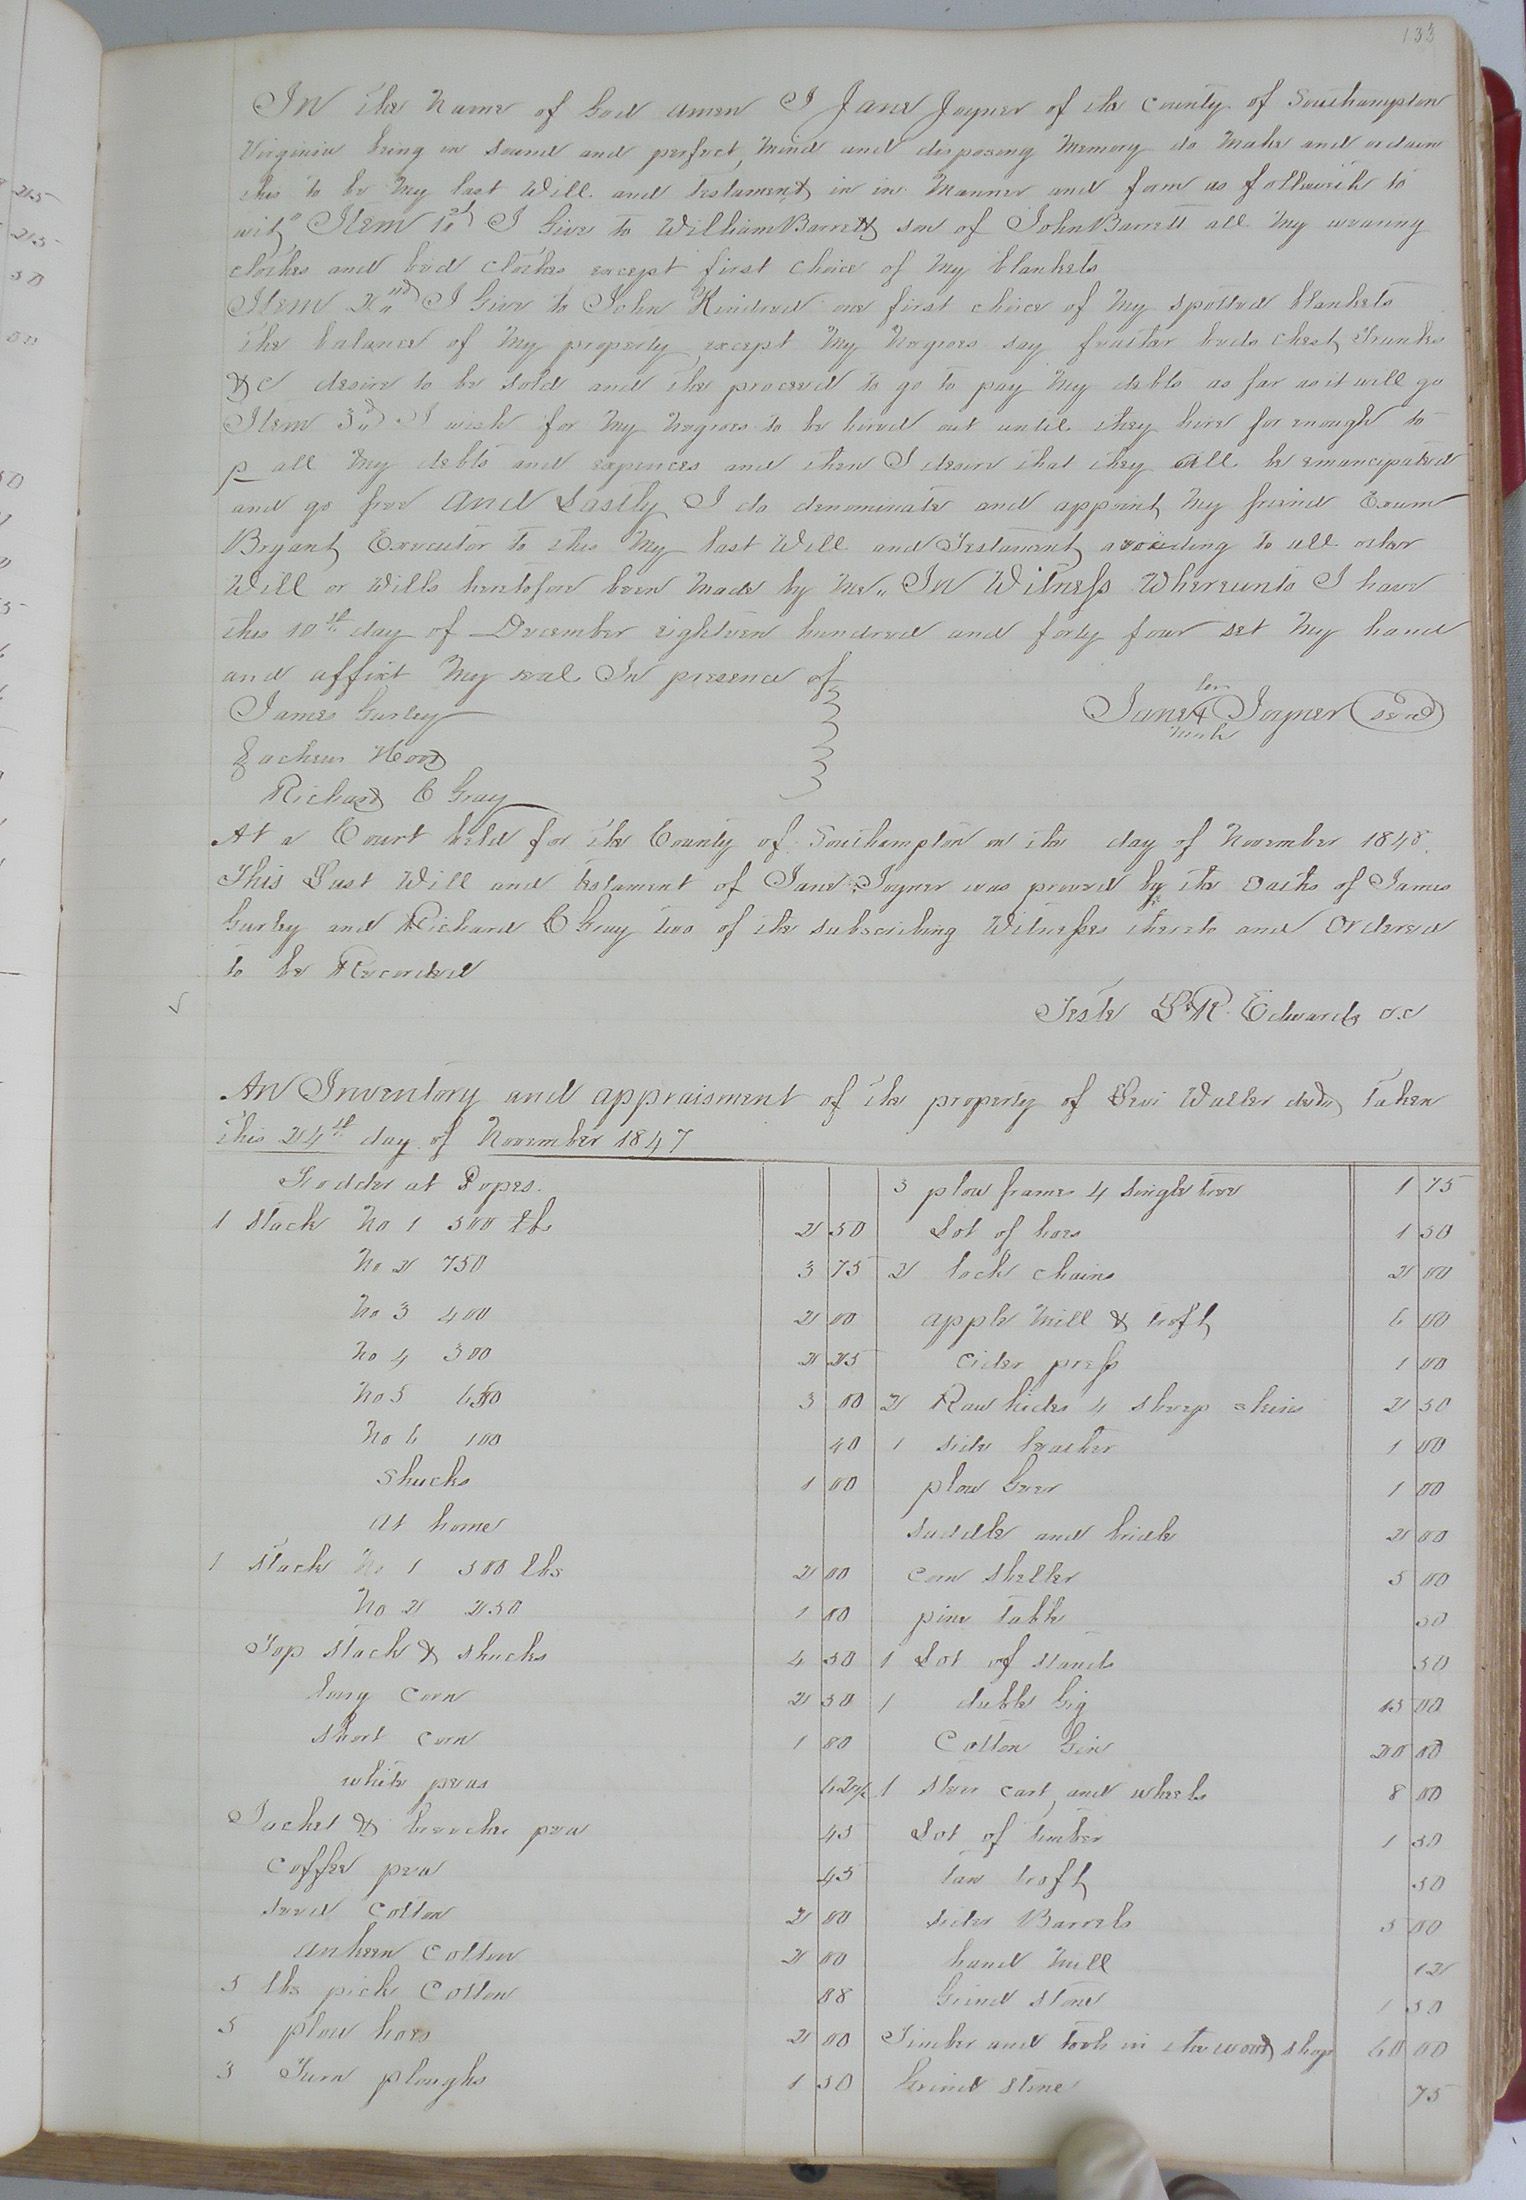 133
In the Name of God amen I Jane Joyner of the County of Southampton
Virginia being in sound and perfect, mind and disposing Memory do Make and ordain
this to be My last Will and testament in in Manner and form as followeth to
wit" Item 1st I Give to William Barrett son of John Barrett all My wearing
clothes and bed clothes except first choice of My blankets
Item 2nd I Give to John Kindred one first choice of My spotted blankets
the balance of My property except My Negroes say feather beds Chest Trunks
&c desire to be sold and the proceed to go to pay My debts as far as it will go
Item 3d I wish for My Negroes to be hired out until they hire for enough to
p all My debts and expences and then I desire that they all be emancipated
and go free And Lastly I do denominate and appoint My freind Exum
Bryant Executor to this My last Will and Testament avoiding to all other
Will or Wills heretofore been Made by Me" In Witness Whereunto I have
this 10th day of December eighteen hundred and forty four set My hand
and affixt My seal In presence of
James Gurley
her
Jane + Joyner (seal)
Mark
Zacheus Hood
Richard C Gray
At a Court held for the County of Southampton on the day of November 1848
This Last Will and testament of Jane Joyner was proved by the oaths of James
Gurley and Richard C Gray two of the subscribing Witnesses thereto and Ordered
to be Recorded
Teste L. R. Edwards c.c
An Inventory and appraisment of the property of Levi Waller decd, Taken
this 24th day of November 1847
Fodder at Popes.
1 Stack No 1 500 lbs 2 50
No 2 750 3 75
No 3 400 2 00
No 4 300 2 25
No 5 650 3 00
No 6 100 40
Shucks 1 00
At home
1 Stack No 1 500 lbs 2 00
No 2 250 1 00
Top stack & shucks 4 50
long corn 2 50
short corn 1 80
white peas 62 1/2
Jacket & breeches pea 45
Coffee pea 45
seed cotton 2 00
cotton 2 00
5 lbs pick Cotton 88
5 plow hoes 2 00
3 Turn ploughs 1 50
3 plow frames 4 single tree 1 75
Lot of hoes 1 50
2 lock chains 2 00
apple Mill & troft 6 00
cider press 1 00
2 Raw hides 4 sheep skins 2 50
1 side leather 1 00
plow Geer 1 00
saddle and bridle 2 00
corn sheller 5 00
pine table 50
1 Lot of stands 50
1 dubble Gig 15 00
Cotton Gin 20 00
1 steer cart, and wheels 8 00
Lot of timber 1 50
tan troft 50
sider Barrels 5 00
hand Mill 12
Grind stone 1 50
Timber and tools in the wood shop 60 00
Grind stone 75